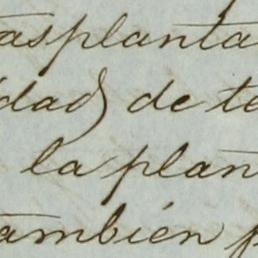 asplanta
idad de te
la plan
ambién p